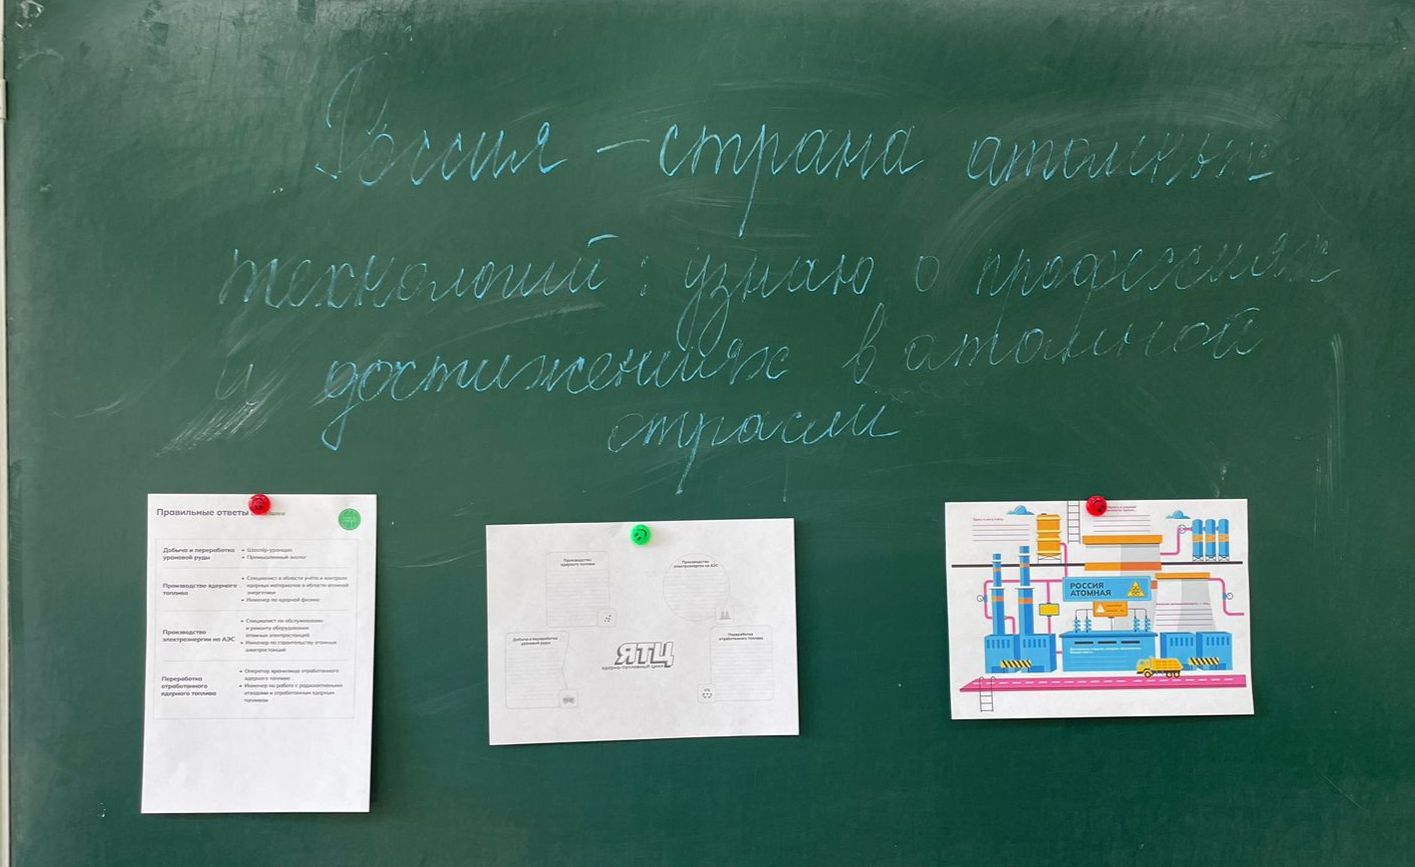 Россия - страна атомных
технологий: узнаю о профессиях
и достижениях в атомной
отрасли
Правильные ответы
Добыча и переработка
урановой руды
• Шахтёр-уранщик
• Промышленный эколог
Производство ядерного
топлива
• Специалист в области учёта и контроля
ядерных материалов в области атомной
энергетики
• Инженер по ядерной физике
Производство
электроэнергии на АЭС
• Специалист по обслуживанию
и ремонту оборудования
атомных электростанций
• Инженер по строительству атомных
электростанций
Переработка
отработанного
ядерного топлива
• Оператор хранилища отработанного
ядерного топлива
• Инженер по работе с радиоактивными
отходами и отработанным ядерным
топливом
Производство
ядерного топлива
Производство
электроэнергии на АЭС
Добыча и переработка
урановой руды
Переработка
отработанного топлива
ЯТЦ
ядерно-топливный цикл
РОССИЯ
АТОМНАЯ